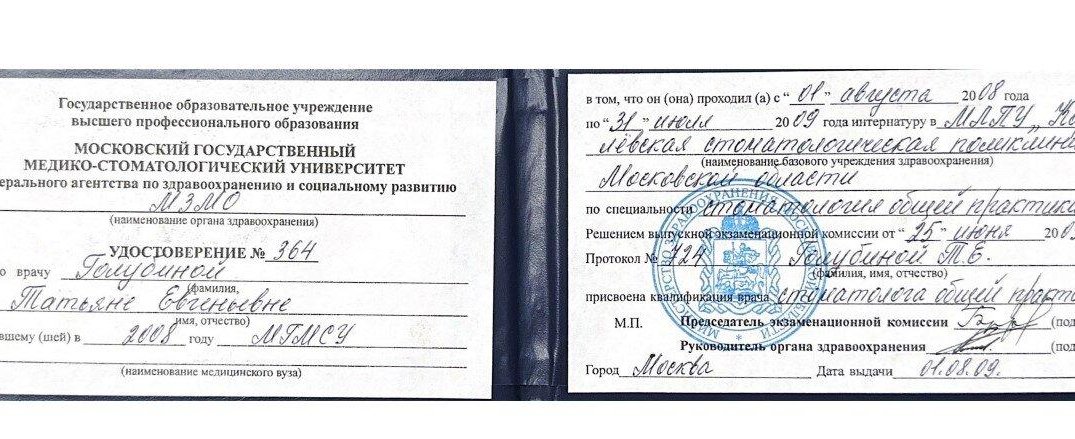 Государственное образовательное учреждение
высшего профессионального образования
МОСКОВСКИЙ ГОСУДАРСТВЕННЫЙ
МЕДИКО-СТОМАТОЛОГИЧЕСКИЙ УНИВЕРСИТЕТ
ерального агентства по здравоохранению и социальному развитию
МЗМО
(наименование органа здравоохранения)
УДОСТОВЕРЕНИЕ № 364
о врачу Голубиной
(фамилия,
Татьяне Евгеньевне
имя, отчество)
вшему (шей) в 2008 году МГМСУ
(наименование медицинского вуза)
в том, что он (она) проходил (а) с “ 01 ” августа 2008 года
по “ 31 ” июля 2009 года интернатуру в МЛПУ „Ко
лёвская стоматологическая поликлини
(наименование базового учреждения здравоохранения)
Московской области
по специальности стоматология общей практики
Решением выпускной экзаменационной комиссии от “ 25 ” июня 200
Протокол № 724 Голубиной Т.Е.
(фамилия, имя, отчество)
присвоена квалификация врача стоматолога общей практ
М.П. Председатель экзаменационной комиссии (под
Руководитель органа здравоохранения (под
Город Москва Дата выдачи 01.08.09.